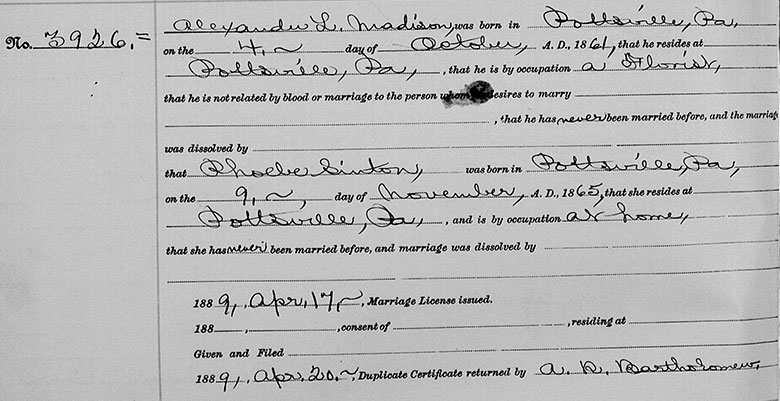 Alexander L. Madison, was born in Pottsville, Pa,
No. 3926.= on the 4, ~ day of October, A. D., 1861, that he resides at
Pottsville, Pa, , that he is by occupation a Florist,
that he is not related by blood or marriage to the person whom desires to marry
, that he has never been married before, and the marriage
was dissolved by
that Phoebe Sinton, was born in Pottsville, Pa,
on the 9, ~, day of November, A. D., 1865, that she resides at
Pottsville, Pa, , and is by occupation at home,
that she has never been married before, and marriage was dissolved by
1889, Apr, 17, ~, Marriage License issued.
188 , , consent of , residing at
Given and Filed
1889, Apr. 20. ~, Duplicate Certificate returned by A. R. Bartholomew,